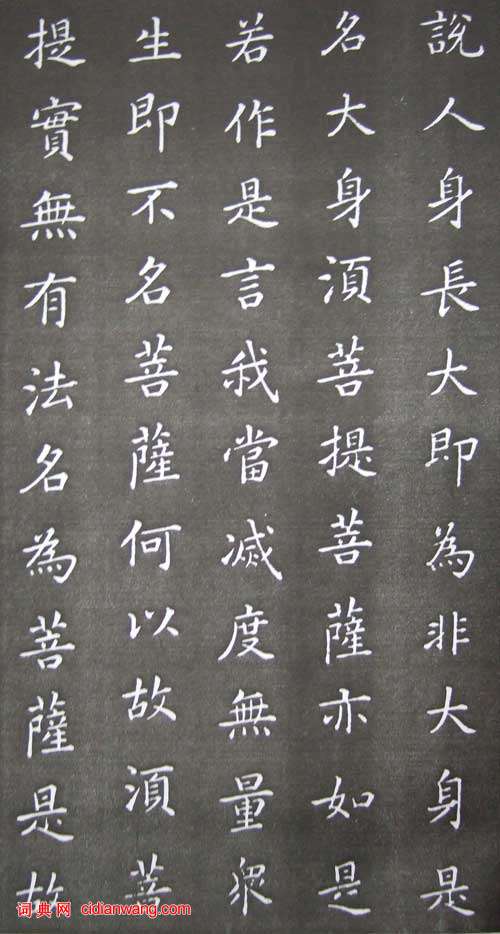 說人身長大即為非大身是
名大身湏菩提菩薩亦如是
若作是言我當滅度無量眾
生即不名菩薩何以故湏菩
提實無有法名為菩薩是故
词典网 cidianwang.com